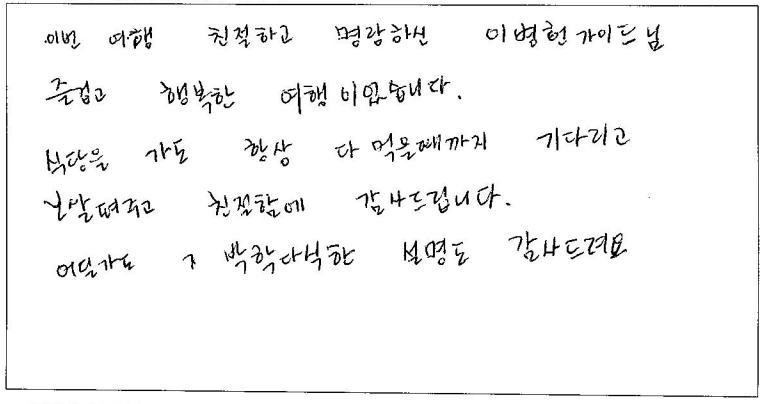 이번 여행 친절하고 명랑하신 이병헌가이드님
즐겁고 행복한 여행이었습니다.
식당을 가도 항상 다 먹을때까지 기다리고
친절함에 감사드립니다.
어딜가도 박학다식한 설명도 감사드려요